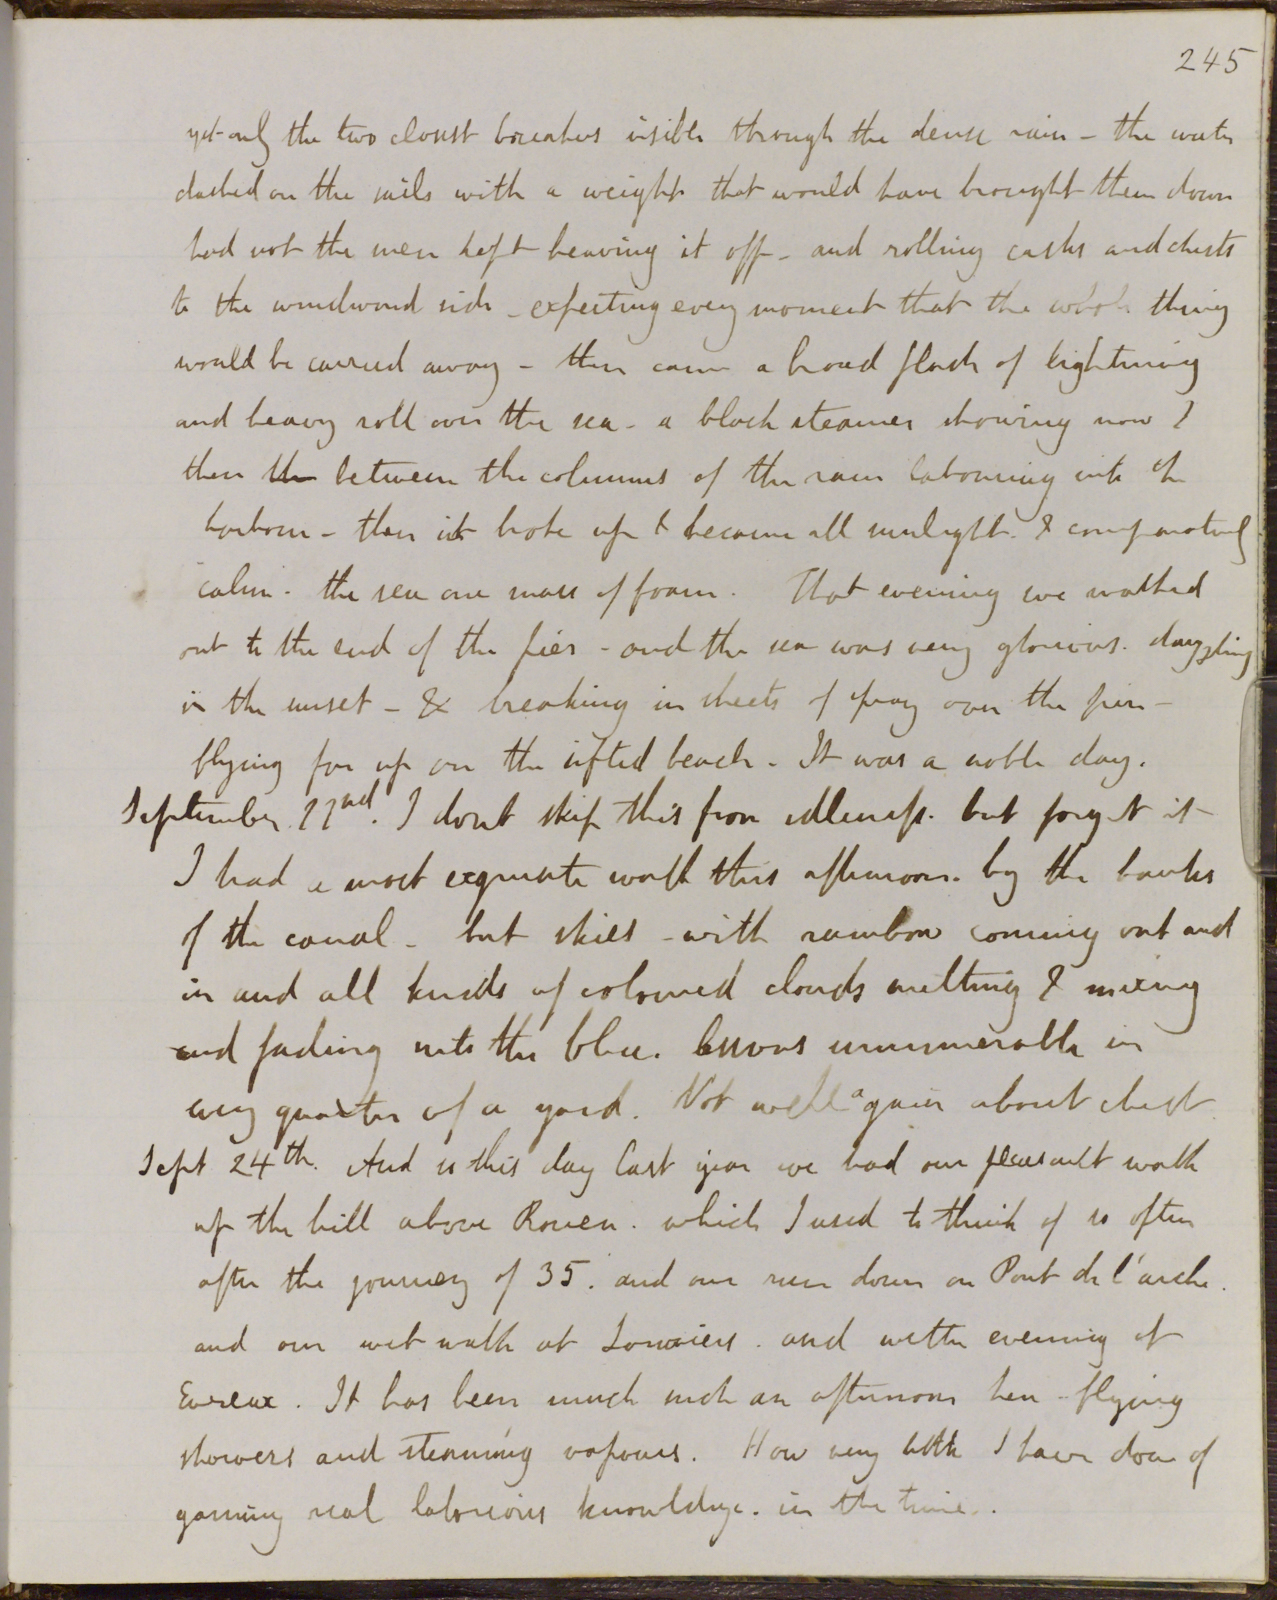 245
yet only the two closest breakers visible through the dense rain - the water
dashed on the sails with a weight that would have brought them down
had not the men kept heaving it off - and rolling casks and chests
to the windward side - expecting every moment that the whole thing
would be carried away - then came a broad flash of lightning
and heavy roll over the sea - a black steamer showing now &
then the between the columns of the rain labouring into the
harbour - then it broke up & became all sunlight. & comparatively
calm. the sea one mass of foam. That evening we walked
out to the end of the pier - and the sea was very glorious. dazzling
in the sunset - & breaking in sheets of spray over the pier -
flying far up on the sifted beach. It was a noble day.
September 22nd. I dont skip this from idleness. but forget it -
I had a most exquisite walk this afternoon. by the banks
of the canal - but skies - with rainbow coming out and
in and all kinds of coloured clouds melting & mixing
and fading into the blue. innumerable in
every quarter of a yard. Not well again about chest
Sept 24th. And so this day last year we had our pleasant walk
up the hill above Rouen. which I used to think of so often
after the journey of 35. and our run down on Pont de l'arche.
and our wet walk at Louviers. and wetter evening at
Evreux. It has been much such an afternoon here - flying
showers and steaming vapours. How very little I have done of
gaining real laborious knowledge. in the time.